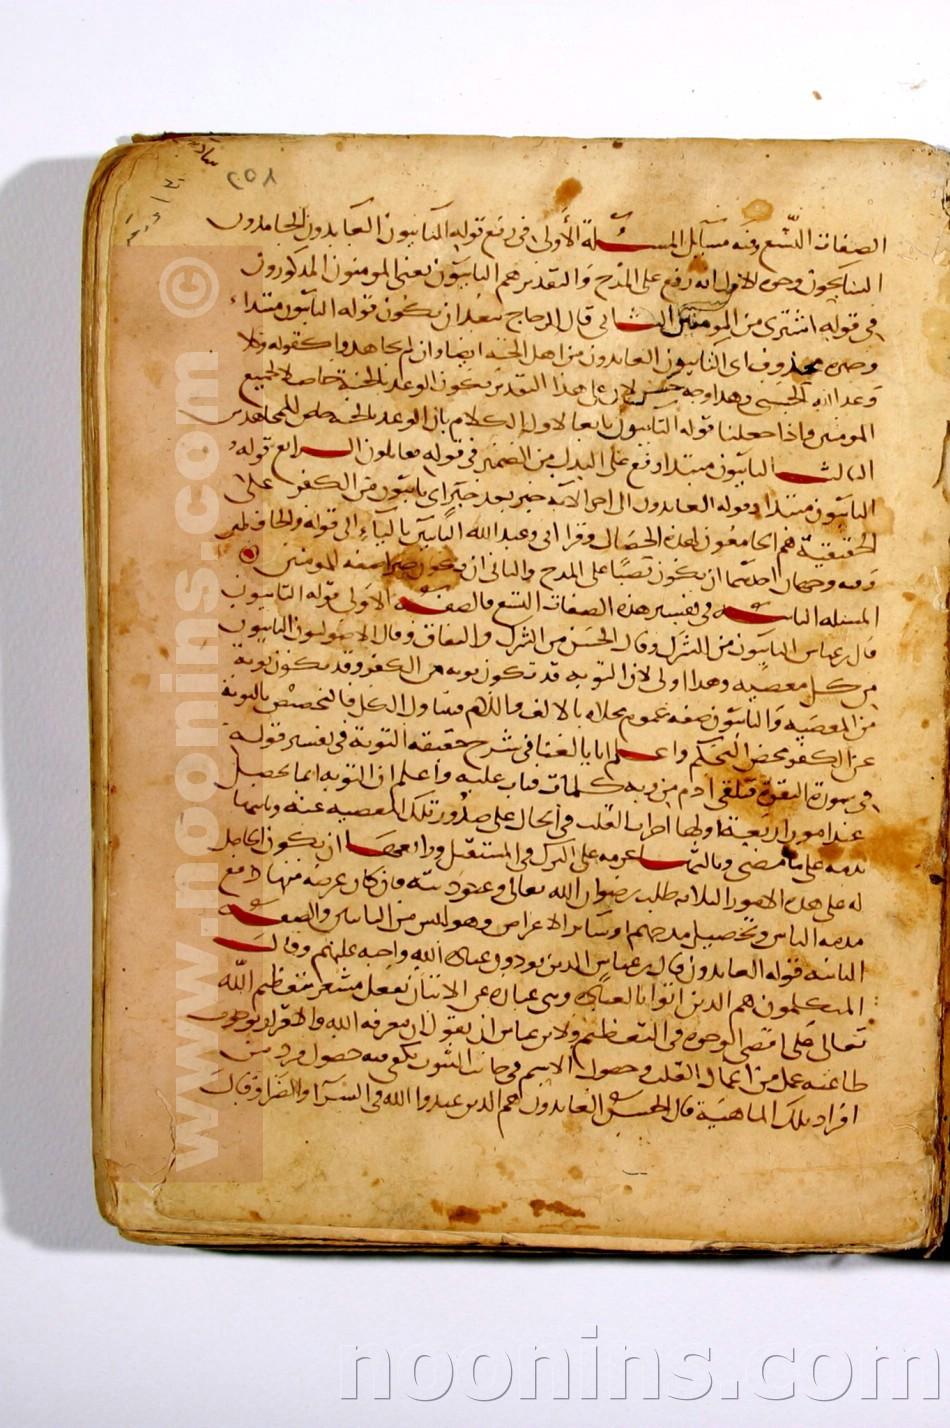 ٢٥٨
الصفات التسع وفيه مسايل المسئلة الأولى في رفع قوله التايبون العابدون الحامدون
السايحون وجوه الاول انه رفع على المدح والتقدير هم التايبون يعنى المومنون المذكورون
في قوله اشترى من المومنين الثاني قال الزجاج يبعد ان يكون قوله التايبون مبتداء
وخبره محذوف اى التايبون العابدون من اهل الجنة ايضا وان لم يجاهدوا كقوله وكلا
وعد الله الحسنى وهذا وجه حسن لان على هذا التقدير يكون الوعد بالجنة حاصلا لجميع
المومنين واذا جعلنا قوله التايبون تابعا لاول الكلام كان الوعد بالجنة حاصل للمجاهدين
الثالث التايبون مبتدا او رفع على البدل من الضمير في قوله يقاتلون الرابع قوله
التايبون مبتدا وقوله العابدون الى اخر الآية خبر بعد خبر اى التايبون من الكفر على
الحقيقية هم الجامعون لهذه الخصال وقرا ابى وعبد الله التايبين بالياء الى قوله والحافظين
وفيه وجهان احدهما ان يكون نصبا على المدح والثانى ان يكون جرا صفة المومنين
المسئلة الثانية في تفسير هذه الصفات التسع فالصفة الاولى قوله التايبون
قال بن عباس التايبون من الشرك وقال الحسن من الشرك والنفاق وقال الاصوليون التايبون
من كل معصية وهذا اولى لان التوبه قد تكون توبة من الكفر وقد تكون توبة
من المعصيه والتايبون صيغه عموم محلاة بالالف واللام فتتناول الكل فالتخصيص بالتوبة
عن الكفر محض التحكم واعلم انا بالغنا في شرح حقيقه التوبة في تفسير قوله
في سورة البقرة فتلقى ادم من ربه كلمات فتاب عليه واعلم ان التوبه انما تحصل
عند امور اربعة اولها احتراق القلب في الحال على صدور تلك المعصيه عنه وثانيها
ندمه على ما مضى وثالثها عزمه على الترك في المستقبل ورابعها ان يكون الحامل
له على هذه الامور الثلاثه طلب رضوان الله تعالى وعبوديته فان كان غرضه منها دفع
مذمه الناس وتحصيل مدحهم او ساير الاغراض فهو ليس من التايبين والصفة
الثانيه قوله العابدون قال بن عباس الذين يودون عبادة الله واجبة عليهم وقال
المتكلمون هم الذين اتوا بالعبادة وهى عبارة عن الاتيان بفعل مشعر بتعظيم الله
تعالى على اقصى الوجوه في التعظيم ولابن عباس ان يقول ان معرفه الله والاقرار بوجوب
طاعته عمل من اعمال القلب وحصول الاسم في جانب الثبوت يكفى فيه حصول فرد من
افراد تلك الماهية قال الحسن العابدون هم الذين عبدوا الله في السرآ والضرآ وقال
www.noonins.com ©
noonins.com